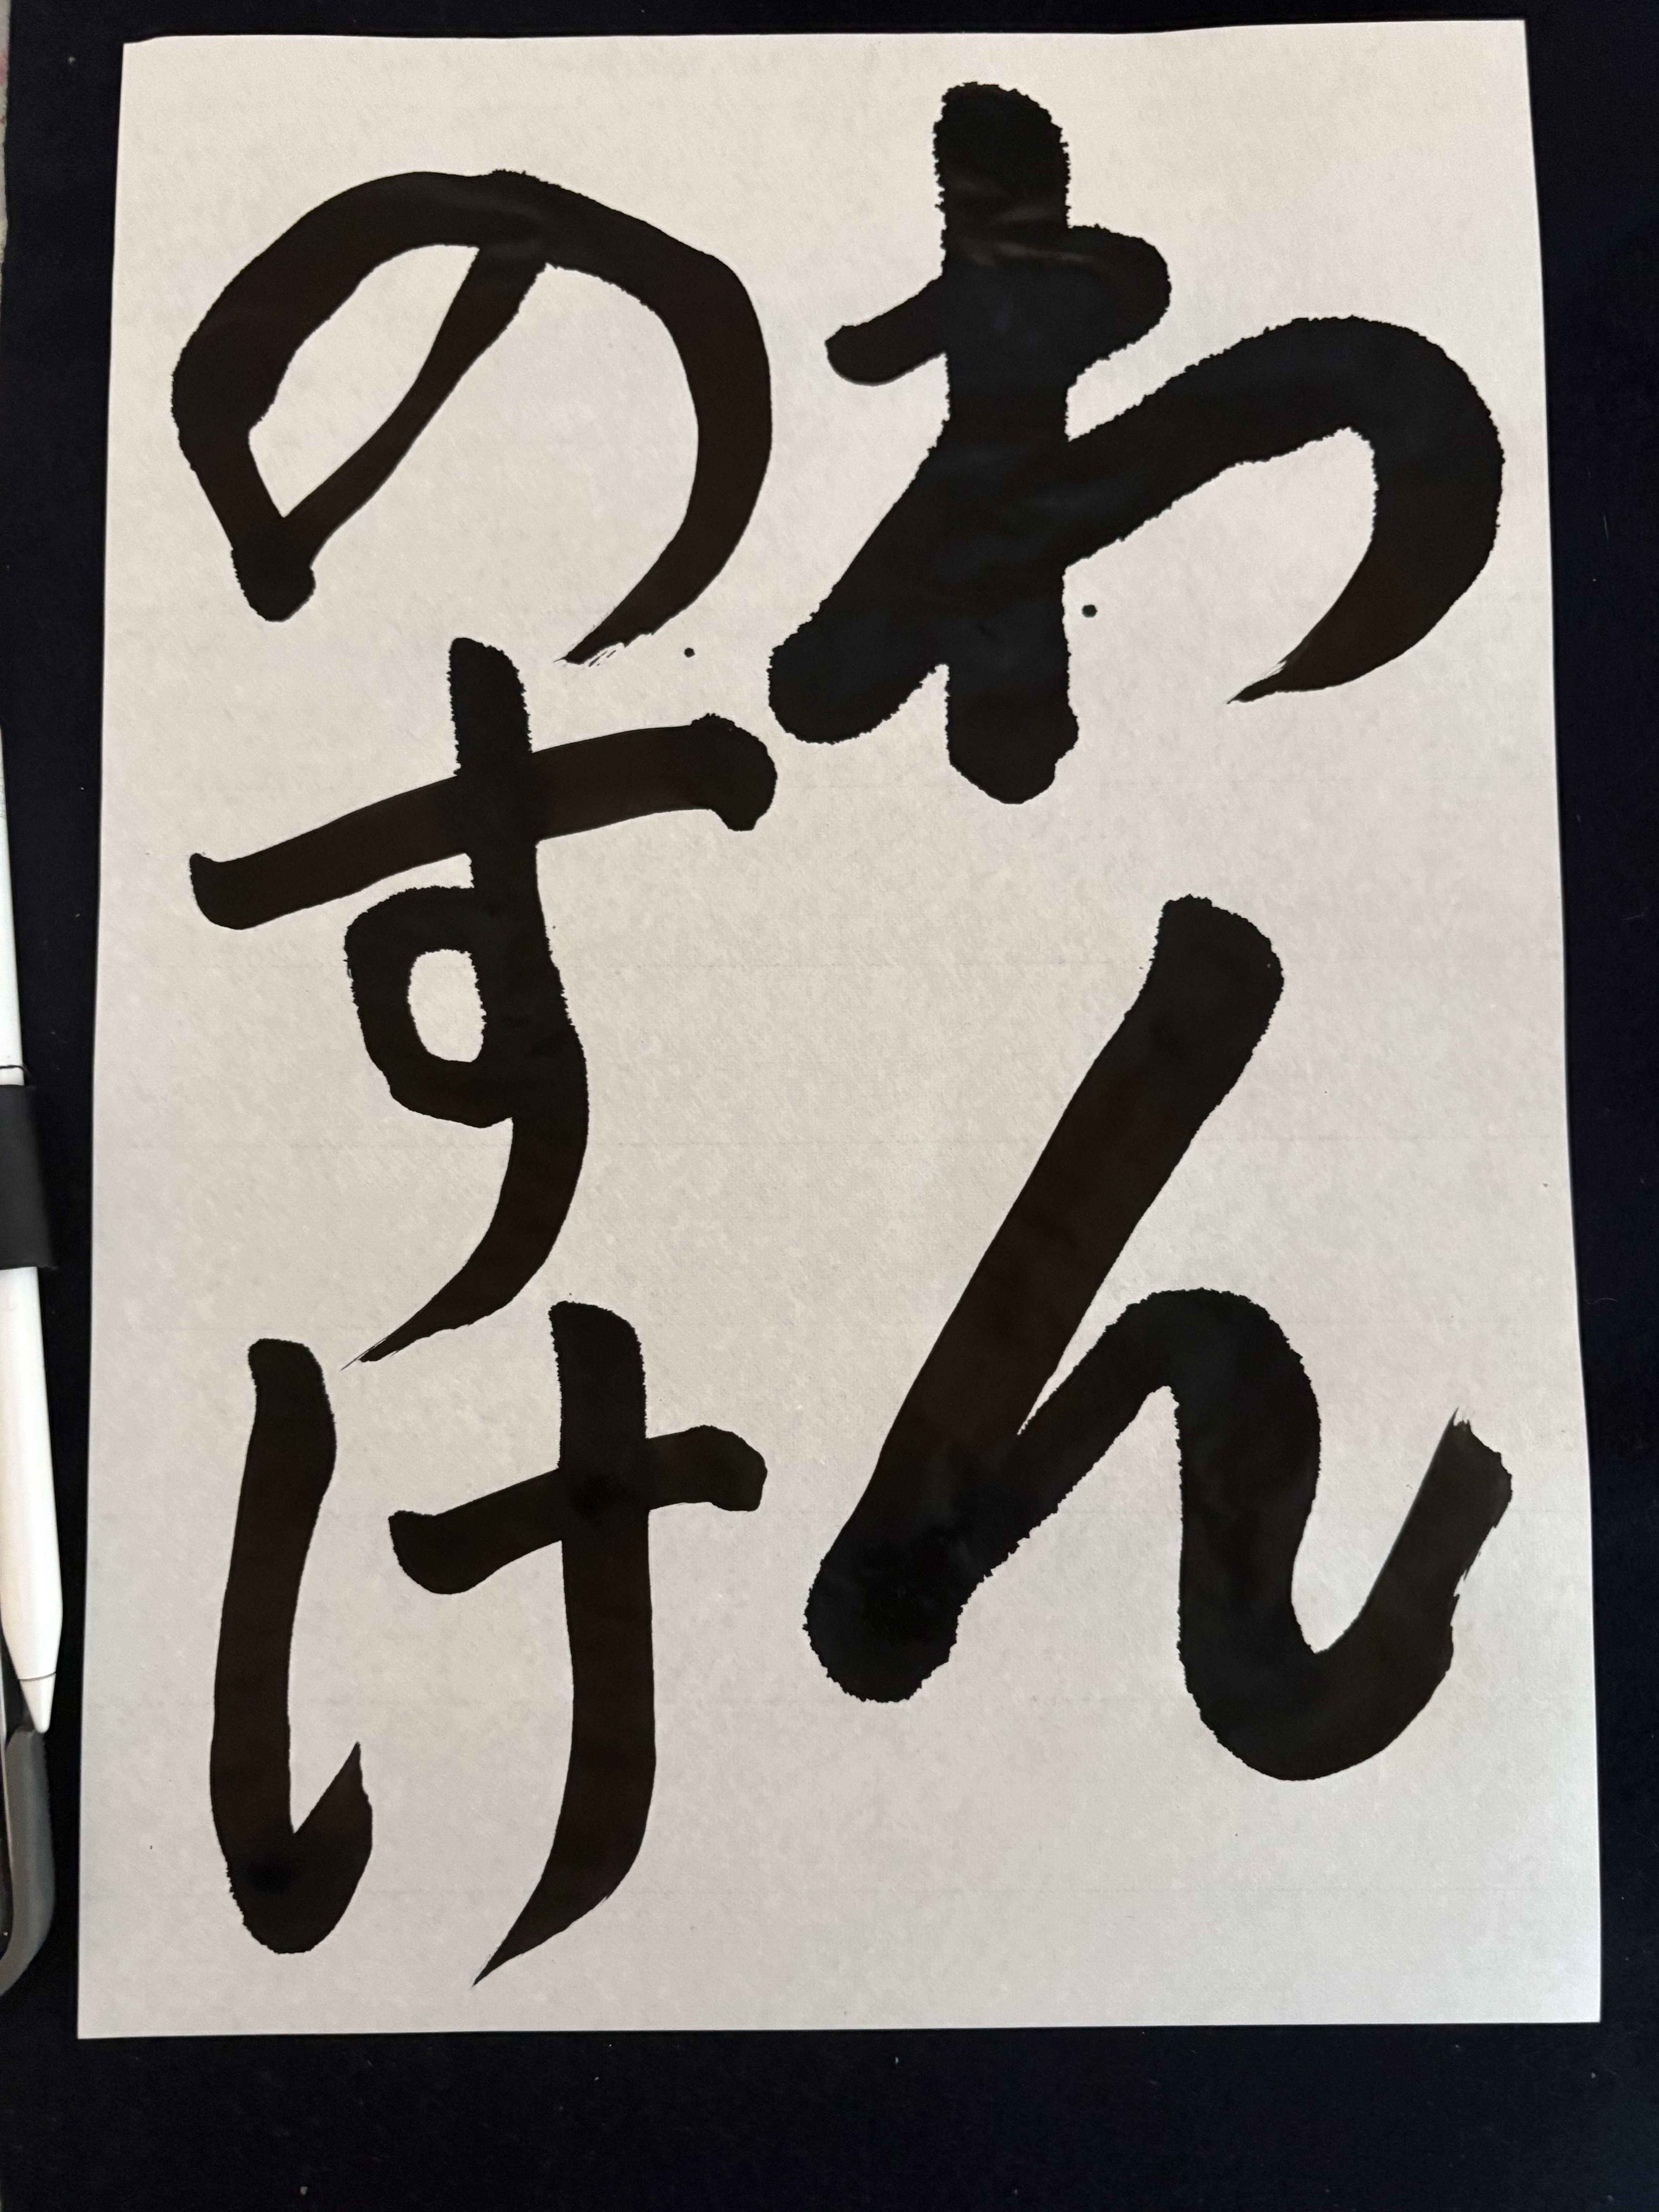 わん
のすけ